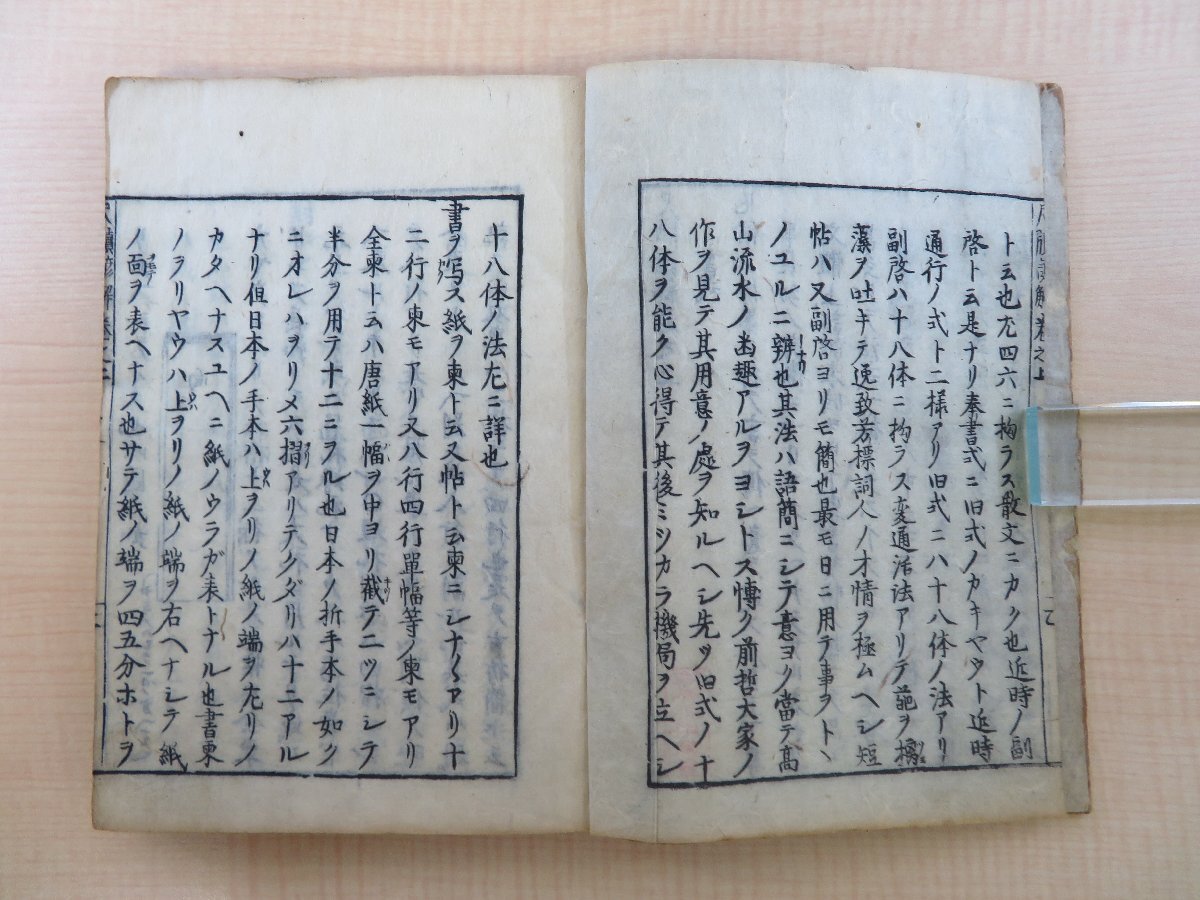 ト云也尤四六ニ拘ラス散文ニカク也近時ノ副
啓ト云是ナリ奉書式ニ旧式ノカキヤウト近時
通行ノ式ト二様アリ旧式ニハ十八体ノ法アリ
副啓ハ十八体ニ拘ラス変通活法アリテ葩ヲ摛
藻ヲ吐キテ逸致芳標詞人ノ才情ヲ極ムヘシ短
帖ハ又副啓ヨリモ簡也最モ日ニ用テ事ヲトヽ
ノユルニ辨也其法ハ語簡ニシテ意ヨク當テ高
山流水ノ幽趣アルヲヨシトス慱ク前哲大家ノ
作ヲ見テ其用意ノ處ヲ知ルヘシ先ツ旧式ノ十
八体ヲ能ク心得テ其後ミツカラ機局ヲ立ヘシ
十八体ノ法左ニ詳也
書ヲ寫ス紙ヲ柬ト云又帖ト云柬ニシナ〱アリ十
二行ノ柬モアリ又八行四行單幅等ノ柬モアリ
全柬ト云ハ唐紙一幅ヲ中ヨリ截テ二ツニシテ
半分ヲ用テ十二ニヲル也日本ノ折手本ノ如ク
ニオレハヲリメ六摺アリテクダリハ十二アル
ナリ但日本ノ手本ハ上ヲリノ紙ノ端ヲ左リノ
カタヘナスユヘニ紙ノウラガ表トナル也書柬
ノヲリヤウハ上ヲリノ紙ノ端ヲ右ヘナシテ紙
ノ面ヲ表ヘナス也サテ紙ノ端ヲ四五分ホトヲ